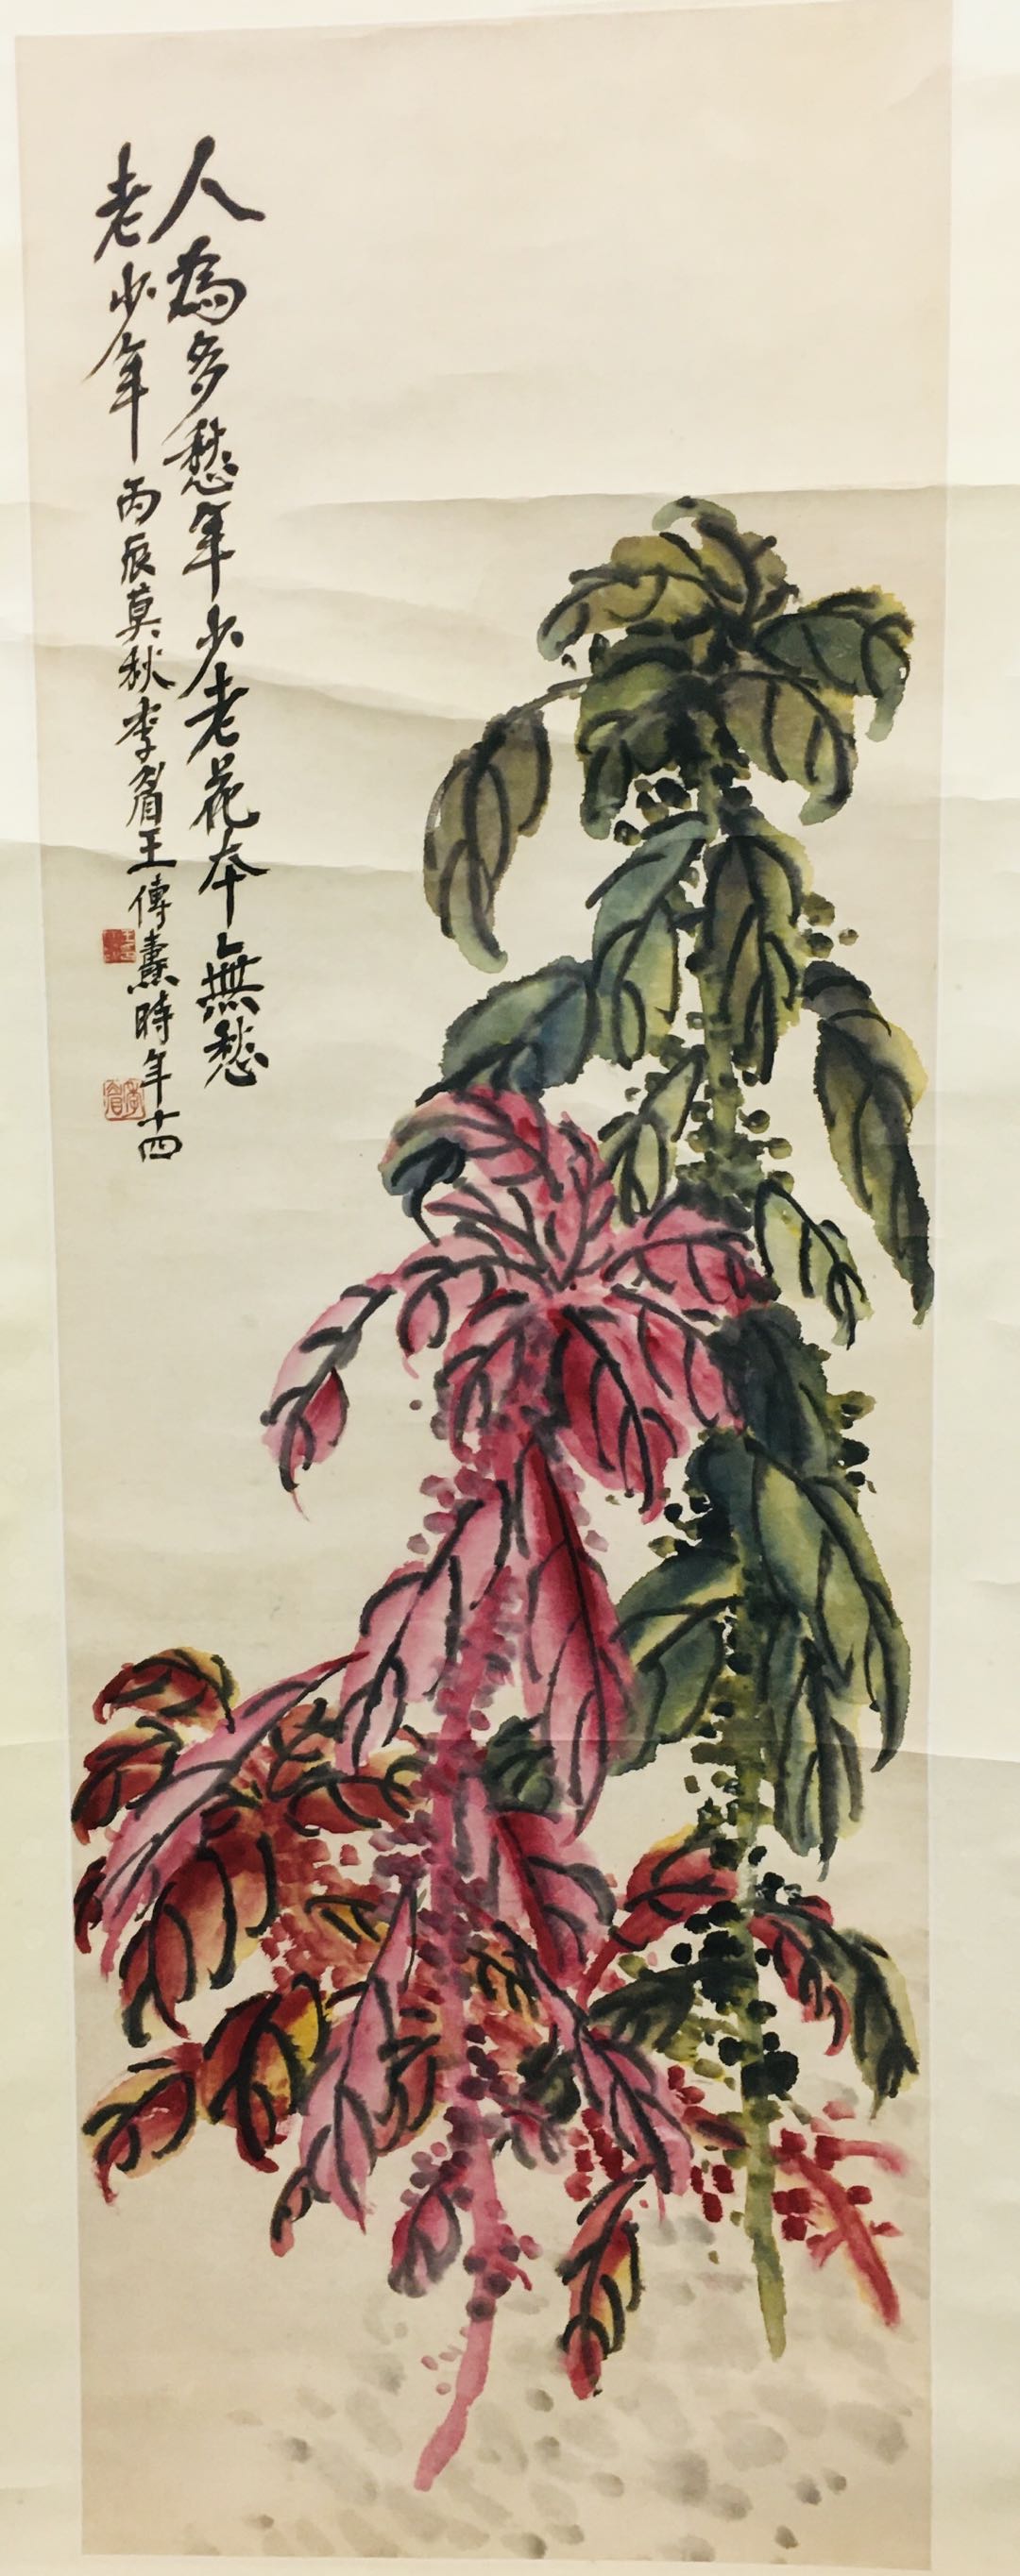 人為多愁年少老花本無愁
老少年丙辰莫秋李眉王傳燾時年十四